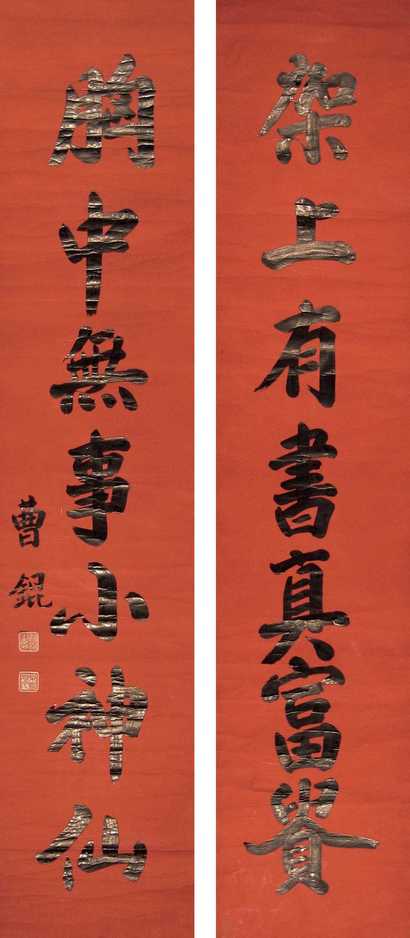 架上有書真富貴
胸中無事小神仙
曹錕